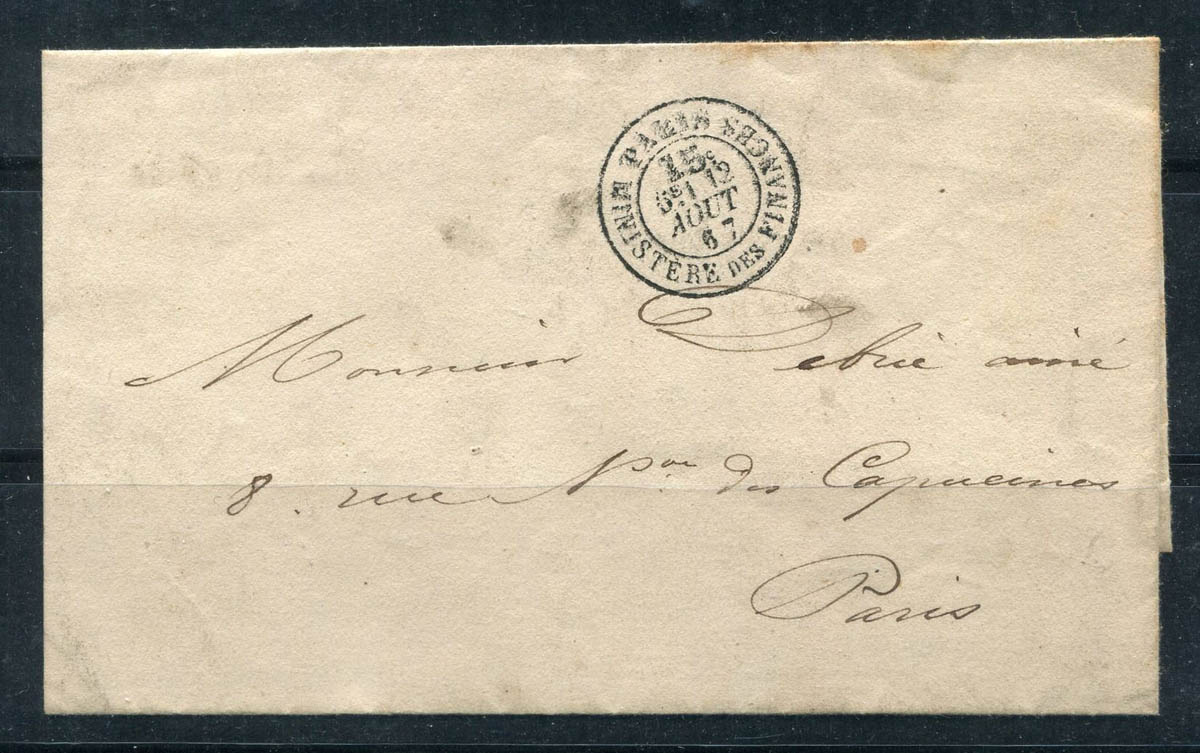 PARIS
MINISTÈRE DES FINANCES
15c
5E/ 12
AOUT
67
Monsieur Debrie ainé
8. rue Nve des Capucines
Paris